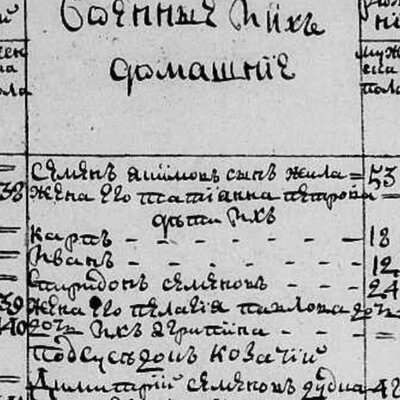 военные ї ихъ
домашнїе
й
муж
ска
пола
Семенъ якимовъ сынъ жила = 53
38 жена его татїанна петрова
дѣти ихъ
карпъ - - - - - - 18
Иванъ - - - - - - 12
Спиридонъ семеновъ - - - - 24
39 жена его пелагїя павлова дочь
40 дочь ихъ агрипина - - -
подсуседокъ козачїй
Димитрїй семеновъ 48